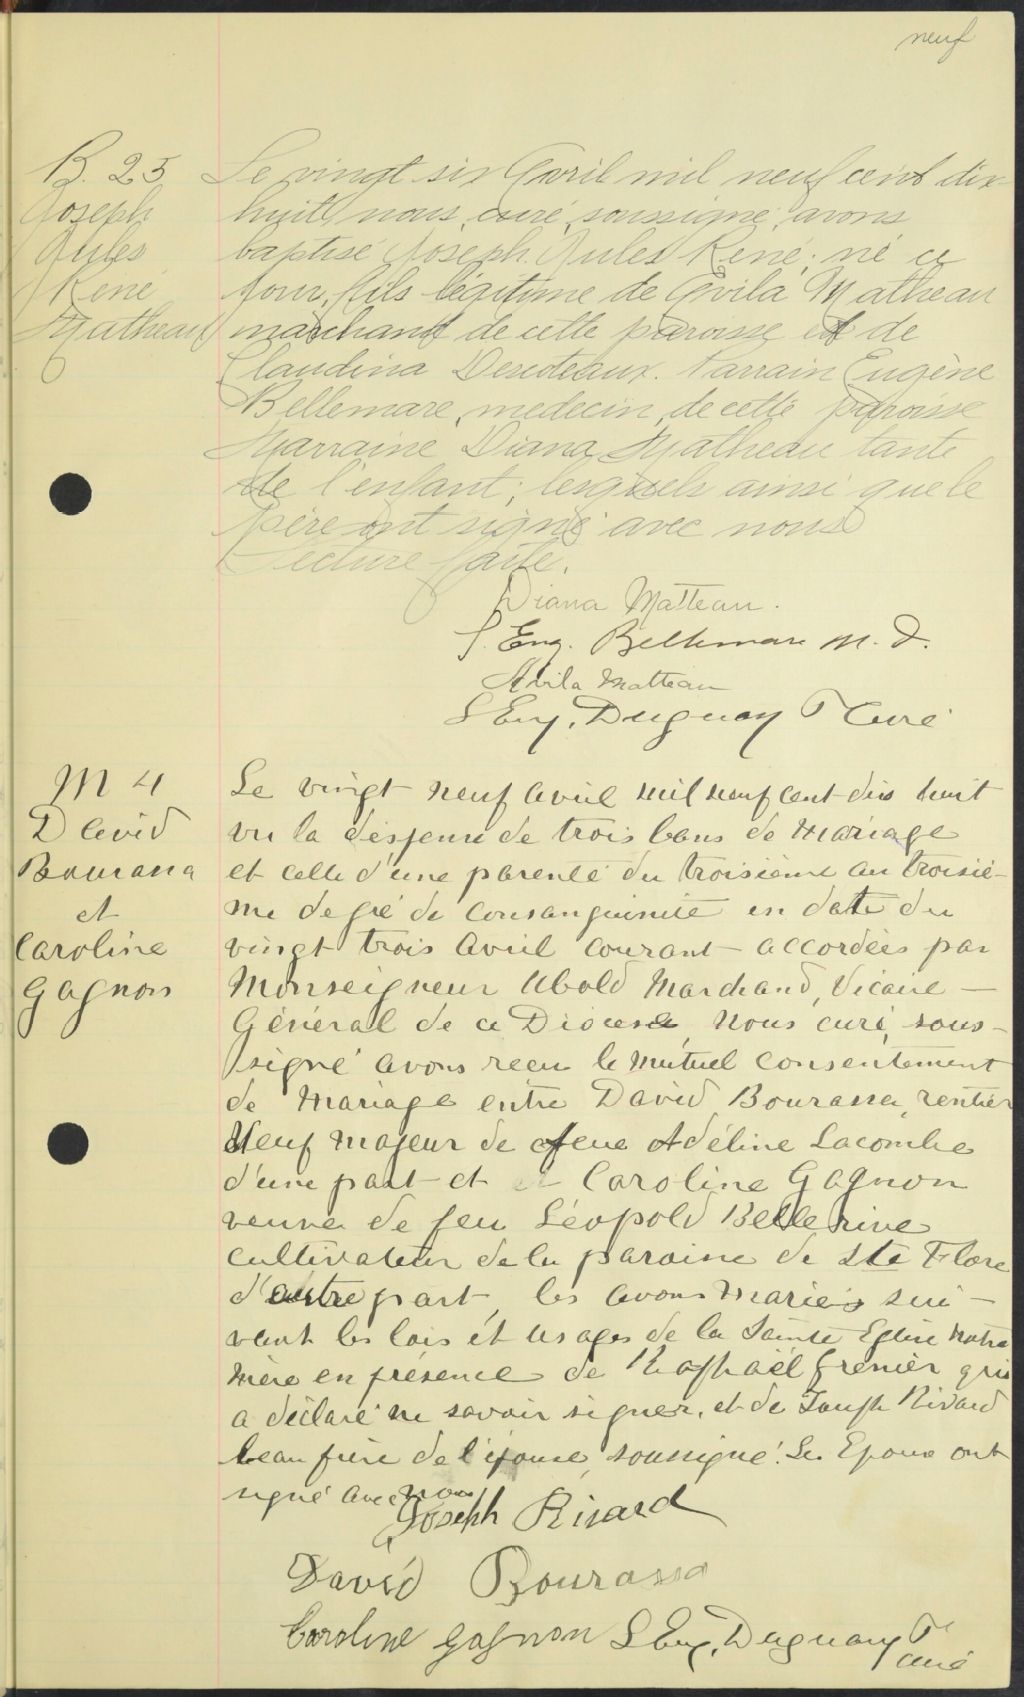 neuf
B. 25
Joseph
Jules
René
Matheau
Le vingt six Avril mil neuf cent dix
huit, nous, curé, soussigné, avons
baptisé Joseph Jules René, né ce
jour, fils légitime de Evila Matheau
marchand de cette paroisse et de
Claudina Descoteaux. Parrain Eugène
Bellemare, medecin, de cette paroisse
Marraine Diana Matheau tante
de l'enfant; lesquels ainsi que le
père ont signé avec nous
Lecture faite.
Diana Matteau.
J. Eug. Bellemare M. D.
Avila Matteau
L Eug. Duguay Ptre Curé
M 4
David
Bourassa
et
Caroline
Gagnon
Le vingt neuf avril mil neuf cent dix huit
vu la dispense de trois bans de mariage
et celle d'une parenté du troisième au troisiè-
me degré de consanguinité en date du
vingt trois avril courant accordées par
Monseigneur Ubald Marchand, Vicaire
Général de ce Diocese, nous curé, sous-
signé avons recu le mutuel consentement
de mariage entre David Bourassa, rentier
Veuf majeur de feue Adéline Lacombe
d'une part et Caroline Gagnon
veuve de feu Léopold Bellerive
cultivateur de la paroisse de Ste Flore
d'autre part, les avons mariés sui-
vant les lois et usages de la Sainte Eglise notre
mère en présence de Raphaël Grenier qui
a déclaré ne savoir signer, et de Joseph Rivard
beau frère de l'épouse, soussigné. Les Epoux ont
signé avec nous
Joseph Rivard
David Bourassa
Caroline Gagnon L Eug. Duguay Ptre
curé